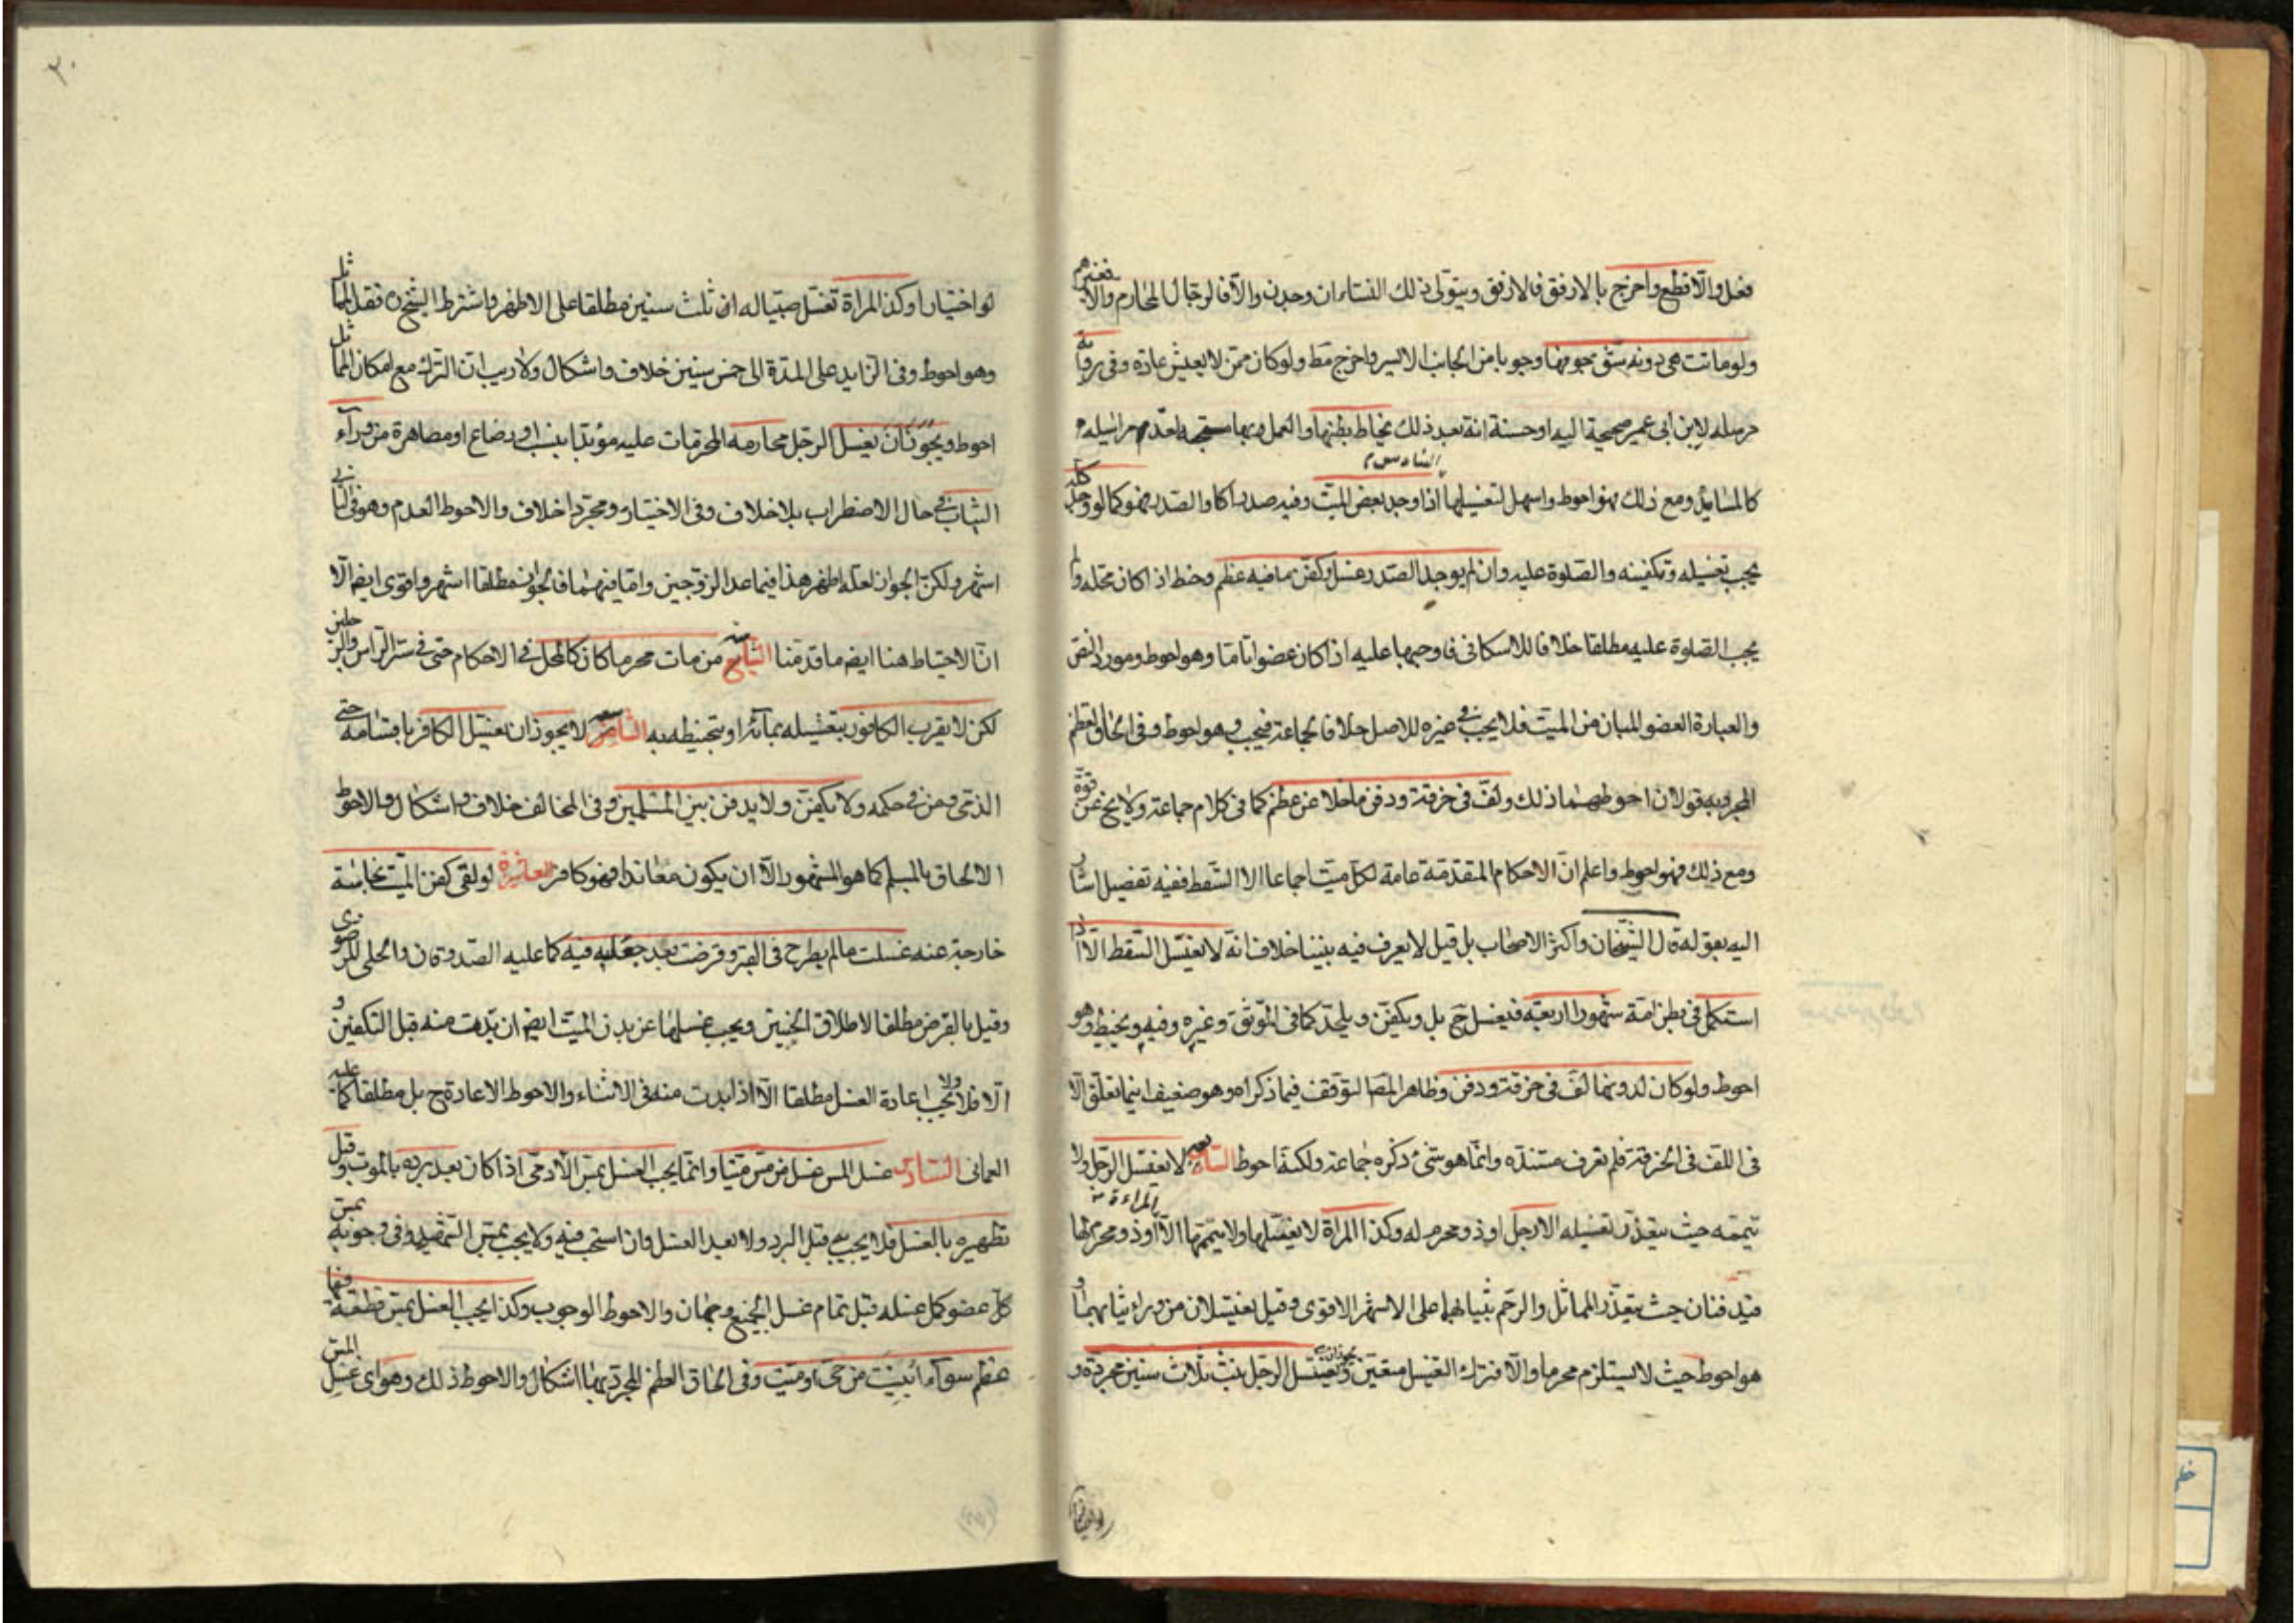 فعل والا قطع واخرج بالارفق فالارفق ويتولى ذلك النساء ان وجدن والا فالرجال المحارم والا فغيرهم
ولو ماتت هي دونه شق جوفها وجوبا من الجانب الايسر واخرج مط ولو كان ممن لا يعيش عادة وفي رواية
مرسلة لابن ابي عمير صحيحة اليه او حسنة انه بعد ذلك يخاط بطنها والعمل بها
كالمسانيد ومع ذلك فهو احوط واسهل لتغسيلها السادس اذا وجد بعض الميت وفيه صدر اكا والصدر فهو كما لو وجد كله
يجب تغسيله وتكفينه والصلوة عليه وان لم يوجد الصدر غسل وكفن ما فيه عظم وحنط اذا كان محله ولم
يجب الصلوة عليه مطلقا خلافا للاسكافي فاوجبها عليه اذا كان عضوا تاما وهو احوط ومورد النص
والعبارة العضو المبان من الميت فلا يجب في غيره للاصل خلافا لجماعة فيجب وهو احوط وفي الحاق العظم
المجرد به قولان احوطهما ذلك ولف في خرقة ودفن ما خلا عن عظم كما في كلام جماعة ولا يخ عن قوة
ومع ذلك فهو احوط واعلم ان الاحكام المتقدمة عامة لكل ميت اجماعا الا السقط ففيه تفصيل اشار
اليه بقوله قال الشيخان واكثر الاصحاب بل قيل لا يعرف فيه بيننا خلاف انه لا يغسل السقط الا اذا
استكمل في بطن امه شهورا اربعة فيغسل ح بل ويكفن ويلحد كما في الموثق وغيره وفيه ويحنط وهو
احوط ولو كان لدونها لف في خرقة ودفن وظاهر المصـ التوقف فيما ذكراه وهو ضعيف فيما تعلق الا
في اللف في الخرقة فلم نعرف مستنده وانما هو شئ ذكره جماعة ولكنه احوط السابعة لا يغسل الرجل ولا
تيممه حيث يتعذر تغسيله الا رجل او ذو محرم له وكذا المراة لا يغسلها ولا ييممها الا المراءة او ذو محرم لها
فيدفنان حيث يتعذر المماثل والرحم بثيابهما على الاشهر الاقوى وقيل يغسلان من وراء ثيابهما و
هو احوط حيث لا يستلزم محرما والا فترك الغسل متعين ويجوز ان يغسل الرجل بنت ثلاث سنين مجردة و
لو اختيارا وكذا المراة تغسل صبيا له ابن ثلث سنين مطلقا على الاظهر واشترط الشيخ ن فقد المماثل
وهو احوط وفي الزايد على المدة الى خمس سنين خلاف واشكال ولا ريب ان الترك مع امكان المماثل
احوط ويجوز ان يغسل الرجل محارمه المحرمات عليه مؤبدا بنسب او رضاع او مصاهرة من وراء
الثياب في حال الاضطرار بلا خلاف وفي الاختيار ومجردا خلاف والاحوط العدم وهو في الثاني
اشهر ولكن الجواز لعله اظهر هذا فيما عدا الزوجين واما فيهما فالجواز مطلقا اشهر واقوى ايضا الا
ان الاحتياط هنا ايضا ما قدمنا الثامنة من مات محرما كان كالمحل في الاحكام حتى في ستر الراس والرجلين
لكن لا يقرب الكافور بتغسيله بمائه او بتحنيطه به التاسعة لا يجوز ان يغسل الكافر باقسامه حتى
الذمي ومن في حكمه ولا يكفن ولا يدفن بين المسلمين وفي المخالف خلاف واشكال والاحوط
الالحاق بالمسلم كما هو المشهور الا ان يكون معاندا فهو كافر العاشرة لو لقى كفن الميت نجاسة
خارجة عنه غسلت مالم يطرح في القبر وقرضت بعد جعله فيه كما عليه الصدوقان والحلي للرضوي
وقيل بالقرض مطلقا لاطلاق الخبرين ويجب غسلها عن بدن الميت ايضا ان بدت منه قبل التكفين و
الا فلا ولا يجب اعادة الغسل مطلقا الا اذا بدت منه في الاثناء والاحوط الاعادة ح بل مطلقا كما عليه
العماني السادس غسل المس غسل من مس ميتا وانما يجب الغسل بمس الآدمي اذا كان بعد برده بالموت وقبل
تطهيره بالغسل فلا يجب قبل البرد ولا بعد الغسل وان استحب فيه ولا يجب بمس الشهيد وفي وجوبه بمس
كل عضو كمل غسله قبل تمام غسل الجميع وجهان والاحوط الوجوب وكذا يجب الغسل بمس قطعة فيها
عظم سواء ابينت من حي او ميت وفي الحاق العظم المجرد بها اشكال والاحوط ذلك وهو اي غسل المس